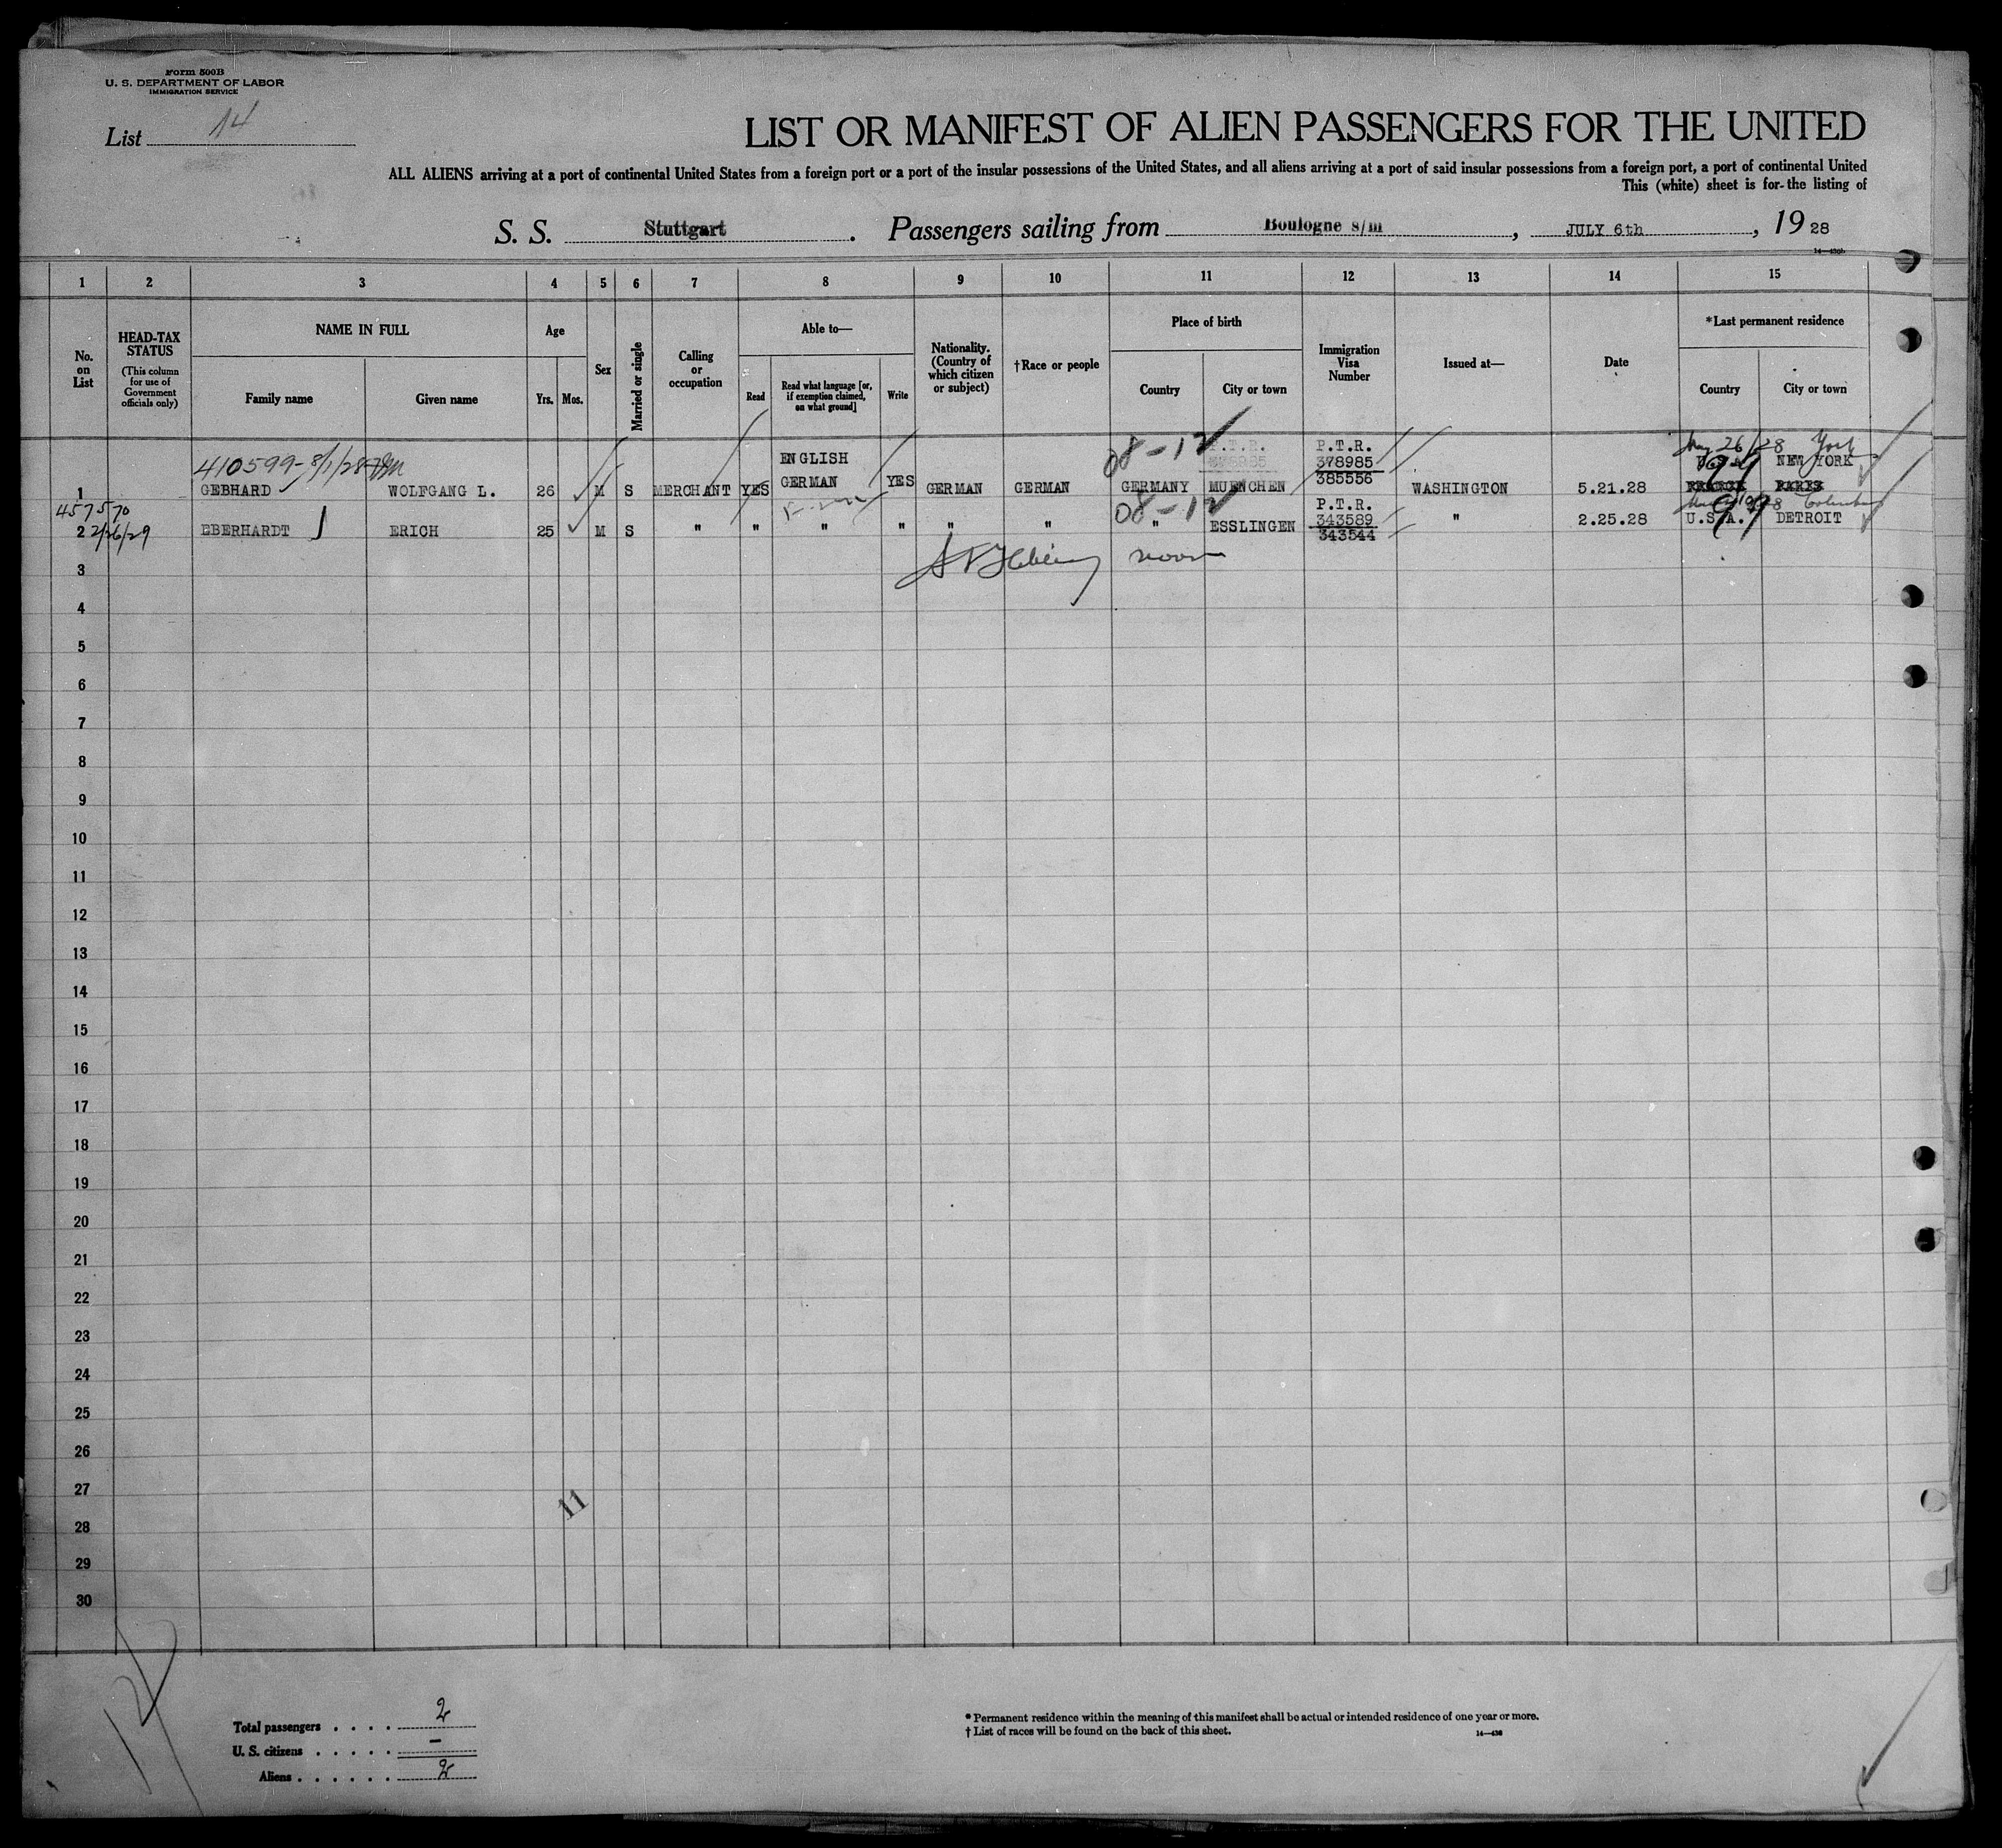 Form 500B
U. S. DEPARTMENT OF LABOR
IMMIGRATION SERVICE
List 14
LIST OR MANIFEST OF ALIEN PASSENGERS FOR THE UNITED
ALL ALIENS arriving at a port of continental United States from a foreign port or a port of the insular possessions of the United States, and all aliens arriving at a port of said insular possessions from a foreign port, a port of continental United
This (white) sheet is for the listing of
S. S. Stuttgart. Passengers sailing from Boulogne s/m, JULY 6th, 19 28
14—430b
1 2 3 4 5 6 7 8 9 10 11 12 13 14 15
No. on List
HEAD-TAX STATUS
(This column for use of Government officials only)
NAME IN FULL
Family name Given name
Age
Yrs. Mos.
Sex
Married or single
Calling or occupation
Able to—
Read Read what language [or, if exemption claimed, on what ground] Write
Nationality. (Country of which citizen or subject)
†Race or people
Place of birth
Country City or town
Immigration Visa Number
Issued at—
Date
*Last permanent residence
Country City or town
410599-8/1/28 ENGLISH 08-12 P.T.R. P.T.R. 26/28 York
378985 NEW YORK
1 GEBHARD WOLFGANG L. 26 M S MERCHANT YES GERMAN YES GERMAN GERMAN GERMANY MUENCHEN 385556 WASHINGTON 5.21.28 FRANCE PARIS
457570 08-12 P.T.R.
343589
2 2/26/29 EBERHARDT ERICH 25 M S " " " " " " " ESSLINGEN 343544 " 2.25.28 U.S.A. DETROIT
3
4
5
6
7
8
9
10
11
12
13
14
15
16
17
18
19
20
21
22
23
24
25
26
27
11
28
29
30
Total passengers . . . . 2
U. S. citizens . . . . . –
Aliens . . . . . . 2
* Permanent residence within the meaning of this manifest shall be actual or intended residence of one year or more.
† List of races will be found on the back of this sheet.
14—430